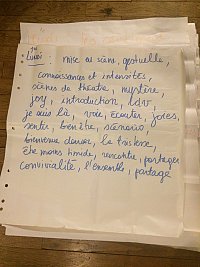 1er
Lundi : mise en scène, gestuelle,
connaissances et intensités,
scènes de théâtre, mystère,
joy, introduction,
je suis là, voix, Ecouter, joies,
sentir, bien être, scénario,
bienvenue danser, la tristesse,
Etre moins timide, rencontre, partager
convivialité, l'ensemble, partage